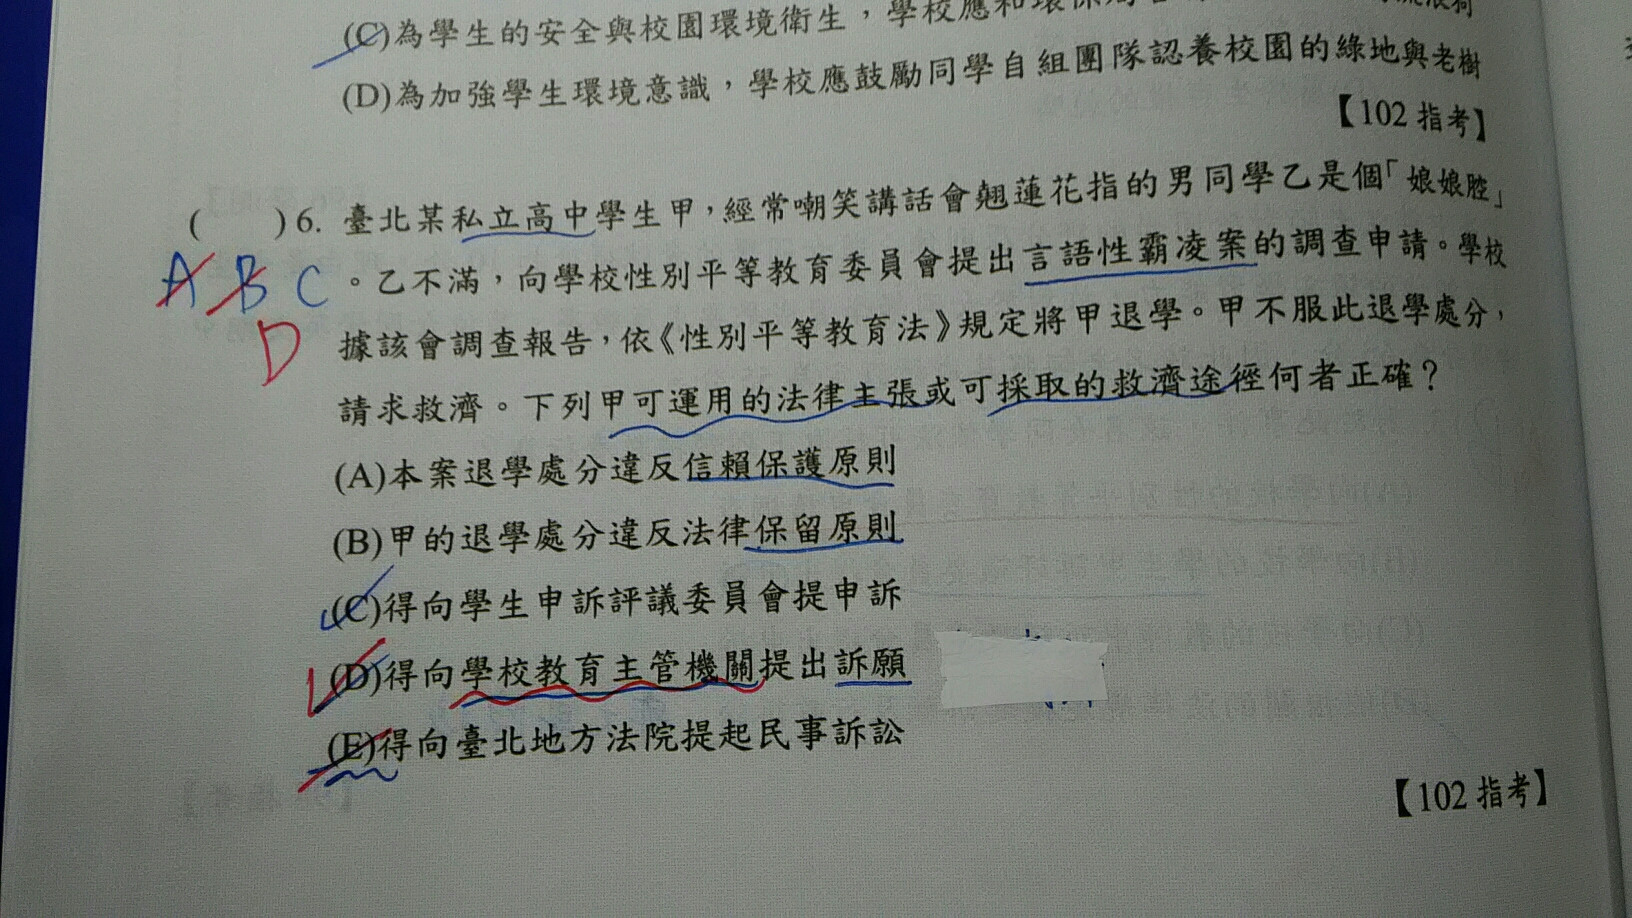 (C)為學生的安全與校園環境衛生，學校應和環保局
(D)為加強學生環境意識，學校應鼓勵同學自組團隊認養校園的綠地與老樹
【102 指考】
(　　)6. 臺北某私立高中學生甲，經常嘲笑講話會翹蓮花指的男同學乙是個「娘娘腔」
A B C 。乙不滿，向學校性別平等教育委員會提出言語性霸凌案的調查申請。學校
D 據該會調查報告，依《性別平等教育法》規定將甲退學。甲不服此退學處分，
請求救濟。下列甲可運用的法律主張或可採取的救濟途徑何者正確？
(A)本案退學處分違反信賴保護原則
(B)甲的退學處分違反法律保留原則
(C)得向學生申訴評議委員會提申訴
(D)得向學校教育主管機關提出訴願
(E)得向臺北地方法院提起民事訴訟
【102 指考】